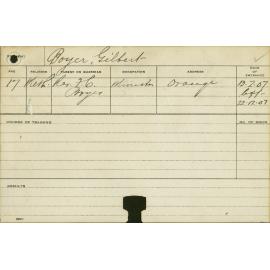 Boyer, Gilbert
AGE RELIGION PARENT OR GUARDIAN OCCUPATION ADDRESS DATE OF ENTRANCE
17 Meth. Rev. F. C. Boyer Minister Orange 13.2.07
Left
22.12.07
COURSE OF TRAINING NO. OF BOOK
RESULTS